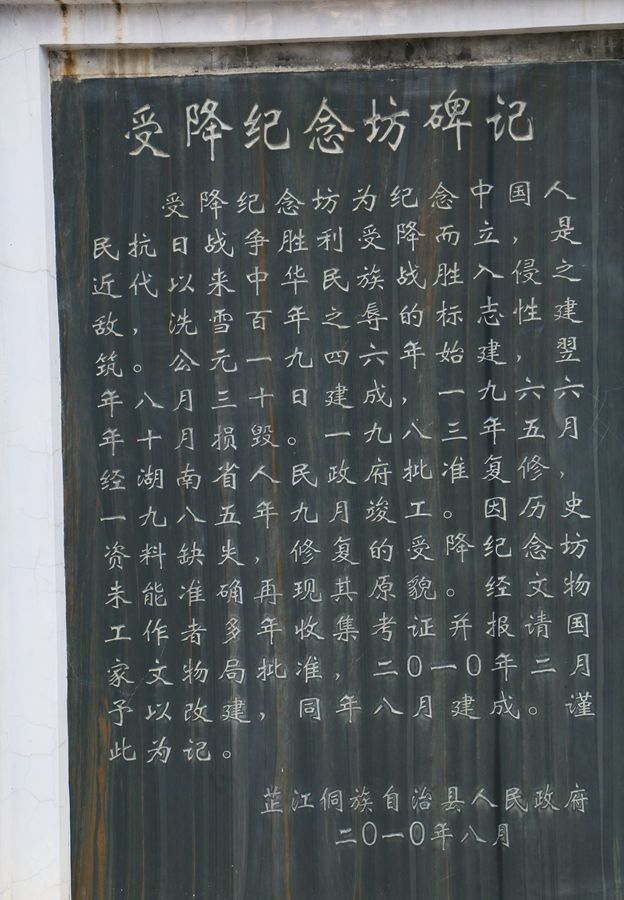 受降纪念坊碑记
受降纪念坊为纪念中国人
民抗日战争胜利受降而立，是
近代以来中华民族战胜入侵之
敌，洗雪百年之辱的标志性建
筑。公元一九四六年始建，翌
年八月三十日建成，一九六六
年十月损毁。一九八三年五月，
经湖南省人民政府批准复修，
一九八五年九月竣工。因历史
资料缺失，修复的受降纪念坊
未能准确再现其原貌。经文物
工作者多年收集考证并报请国
家文物局批准，二〇一〇年二月
予以改建，同年八月建成。谨
此为记。
芷江侗族自治县人民政府
二〇一〇年八月